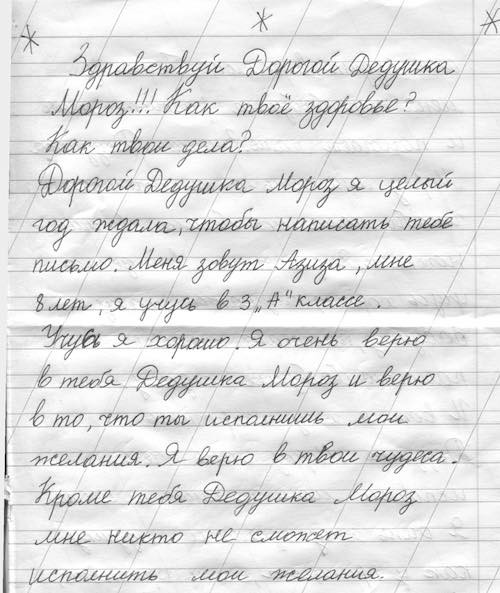 Здравствуй Дорогой Дедушка
Мороз!!! Как твоё здоровье?
Как твои дела?
Дорогой Дедушка Мороз я целый
год ждала, чтобы написать тебе
письмо. Меня зовут Азиза, мне
8 лет, я учусь в 3 „А“ классе.
Учусь я хорошо. Я очень верю
в тебя Дедушка Мороз и верю
в то, что ты исполнишь мои
желания. Я верю в твои чудеса.
Кроме тебя Дедушка Мороз
мне никто не сможет
исполнить мои желания.